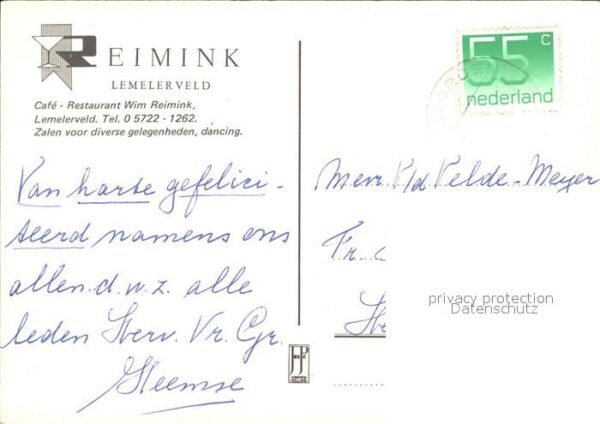 REIMINK
LEMELERVELD
Café - Restaurant Wim Reimink,
Lemelerveld. Tel. 0 5722 - 1262.
Zalen voor diverse gelegenheden, dancing.
55 c
nederland
Van harte gefelici-
teerd namens ons
allen d.w.z. alle
leden Herv. Vr. Gr.
Heemse
Mevr. v/d Velde-Meyer
Fr.
privacy protection
Datenschutz